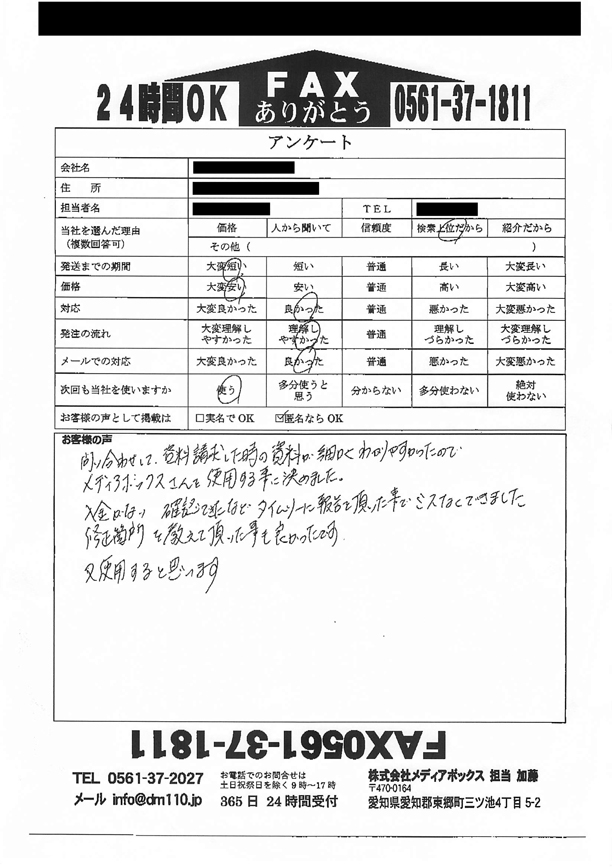 24時間OK
FAX
ありがとう
0561-37-1811
アンケート
会社名
住 所
担当者名 TEL
当社を選んだ理由（複数回答可） 価格 人から聞いて 信頼度 検索上位だから 紹介だから
その他（ ）
発送までの期間 大変短い 短い 普通 長い 大変長い
価格 大変安い 安い 普通 高い 大変高い
対応 大変良かった 良かった 普通 悪かった 大変悪かった
発注の流れ 大変理解しやすかった 理解しやすかった 普通 理解しづらかった 大変理解しづらかった
メールでの対応 大変良かった 良かった 普通 悪かった 大変悪かった
次回も当社を使いますか 使う 多分使うと思う 分からない 多分使わない 絶対使わない
お客様の声として掲載は □実名でOK ☑匿名ならOK
お客様の声
問い合わせして、資料請求した時の資料が細かくわかりやすかったので
メディアボックスさんを使用する事に決めました。
入金がない 確認できたなど タイムリーに報告て頂った事で ミスなくできました
修正箇所 を教えて頂った事も良かったです
又使用すると思います
FAX0561-37-1811
TEL 0561-37-2027
メール info@dm110.jp
お電話でのお問合せは
土日祝祭日を除く9時～17時
365日24時間受付
株式会社メディアボックス 担当 加藤
〒470-0164
愛知県愛知郡東郷町三ツ池4丁目5-2